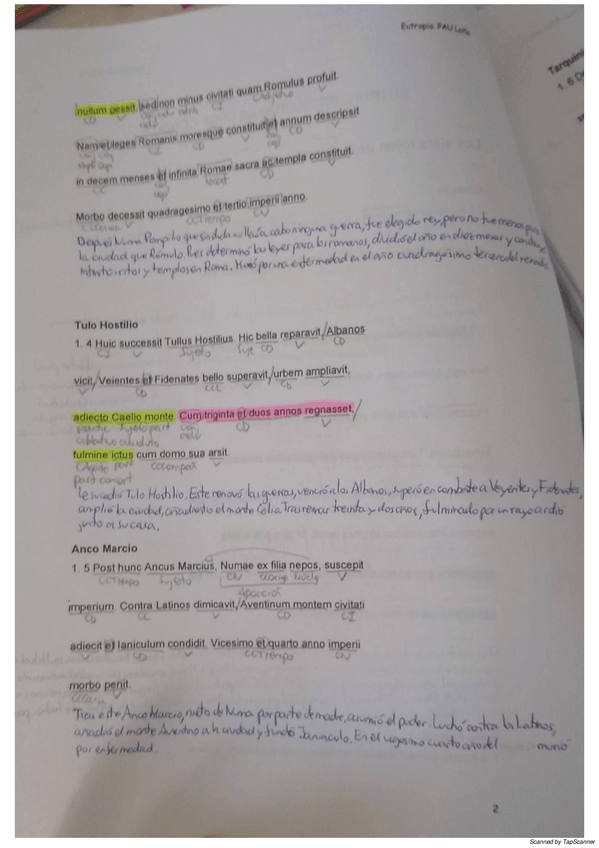 Eutropio. PAU León
Tarquini
1. 6 De
nullum gessit, sed non minus civitati quam Romulus profuit.
CD V CI V
Nam et leges Romanis moresque constituit et annum descripsit
CD CI CD V CD V
in decem menses et infinita Romae sacra ac templa constituit.
CC CD V
Morbo decessit quadragesimo et tertio imperii anno.
CCcausa V CCTiempo CN
Después Numa Pompilio que sin duda no llevó a cabo ninguna guerra, fue elegido rey, pero no fue menos para
la ciudad que Rómulo. Pues determinó las leyes para los romanos, dividió el año en diez meses y construyó
infinitos ritos y templos en Roma. Murió por una enfermedad en el año cuadragésimo tercero del reinado
Tulo Hostilio
1. 4 Huic successit Tullus Hostilius. Hic bella reparavit, Albanos
CI V Sujeto Suje CD V CD
vicit, Veientes et Fidenates bello superavit, urbem ampliavit,
V CD CCL V CD V
adiecto Caelio monte. Cum triginta et duos annos regnasset,
partic Sujeto part CD V
ablativo absoluto
fulmine ictus cum domo sua arsit.
part CCcompañ V
part concert
Le sucedió Tulo Hostilio. Este renovó las guerras, venció a los Albanos, superó en combate a Veyentes y Fidenates,
amplió la ciudad, añadiendo el monte Celio. Tras reinar treinta y dos años, fulminado por un rayo ardió
junto a su casa.
Anco Marcio
1. 5 Post hunc Ancus Marcius, Numae ex filia nepos, suscepit
CCTiempo Sujeto CN Núcleo V
aposición
imperium. Contra Latinos dimicavit, Aventinum montem civitati
CD CC V CD CI
adiecit et Ianiculum condidit. Vicesimo et quarto anno imperii
V CD V CCTiempo CN
morbo periit.
CCcausa V
Tras este Anco Marcio, nieto de Numa por parte de madre, asumió el poder. Luchó contra los Latinos,
añadió el monte Aventino a la ciudad y fundó Janículo. En el vigésimo cuarto año del murió
por enfermedad.
2
Scanned by TapScanner